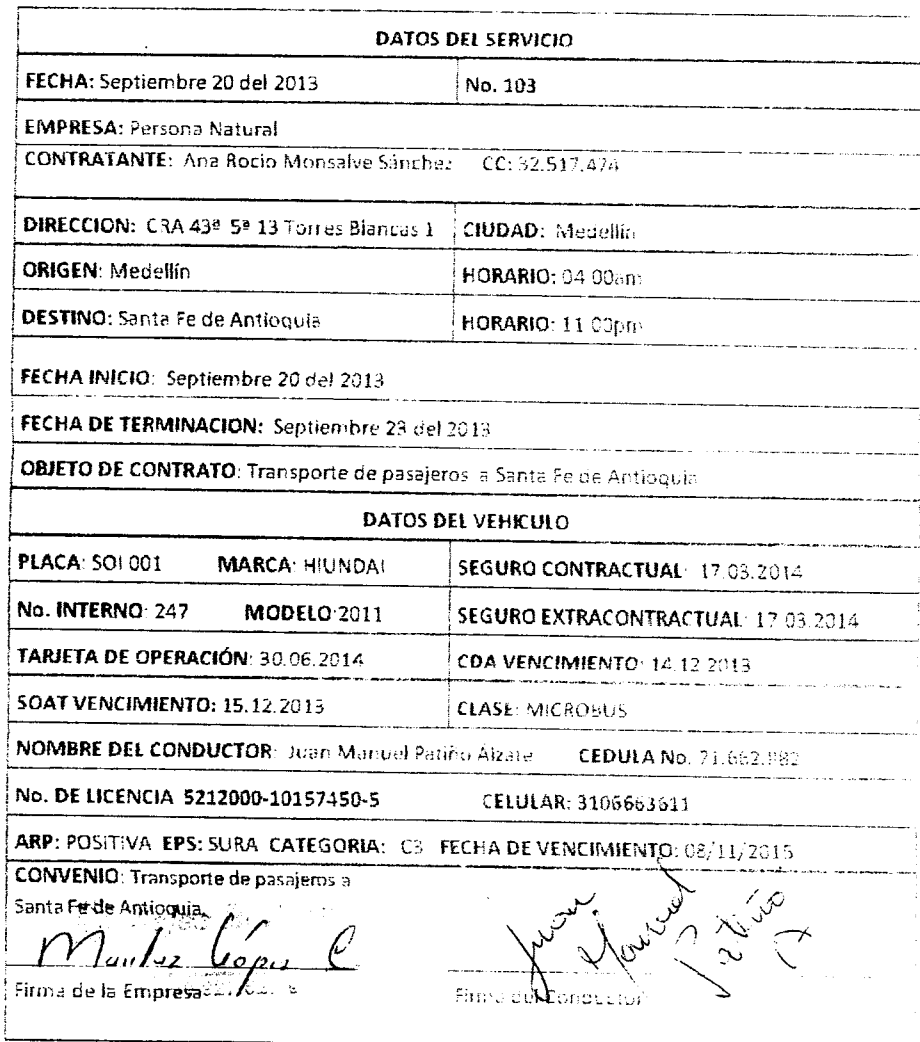 DATOS DEL SERVICIO
FECHA: Septiembre 20 del 2013 No. 103
EMPRESA: Persona Natural
CONTRATANTE: Ana Rocio Monsalve Sánchez CC: 32.517.474
DIRECCION: CRA 43ª 5ª 13 Torres Blancas 1 CIUDAD: Medellín
ORIGEN: Medellín HORARIO: 04 00am
DESTINO: Santa Fe de Antioquia HORARIO: 11 00pm
FECHA INICIO: Septiembre 20 del 2013
FECHA DE TERMINACION: Septiembre 23 del 2013
OBJETO DE CONTRATO: Transporte de pasajeros a Santa Fe de Antioquia
DATOS DEL VEHICULO
PLACA: SOI 001 MARCA: HIUNDAI SEGURO CONTRACTUAL: 17.03.2014
No. INTERNO: 247 MODELO:2011 SEGURO EXTRACONTRACTUAL: 17 03.2014
TARJETA DE OPERACIÓN: 30.06.2014 CDA VENCIMIENTO: 14.12 2013
SOAT VENCIMIENTO: 15.12.2013 CLASE: MICROBUS
NOMBRE DEL CONDUCTOR: Juan Manuel Patiño Alzate CEDULA No. 71.662.982
No. DE LICENCIA 5212000-10157450-5 CELULAR: 3106663611
ARP: POSITIVA EPS: SURA CATEGORIA: C3 FECHA DE VENCIMIENTO: 08/11/2015
CONVENIO: Transporte de pasajeros a
Santa Fe de Antioquia.
López C Juan Manuel Patiño A
Firma de la Empresa Firma del Conductor